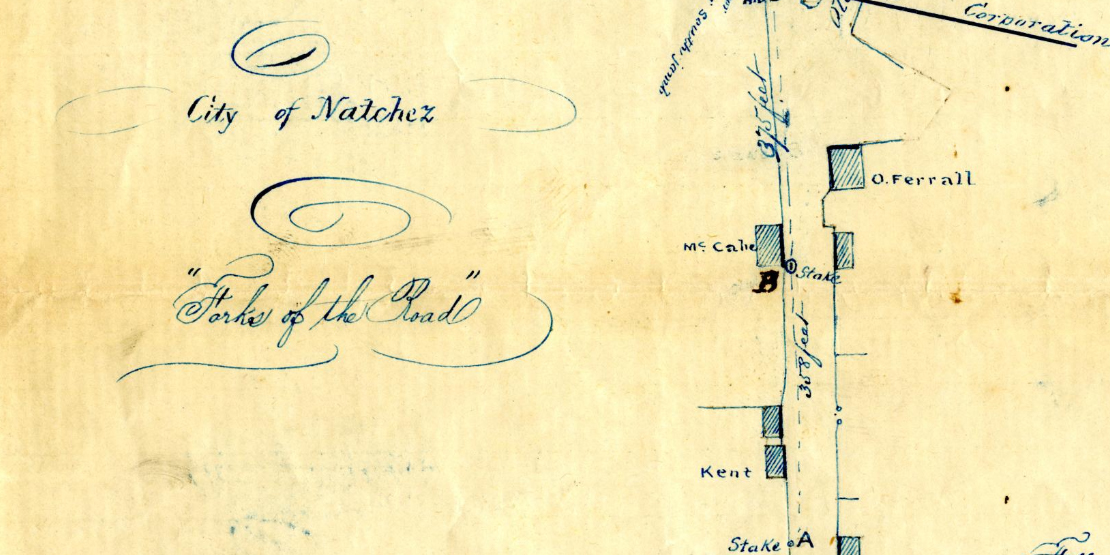 City of Natchez
"Forks of the Road"
Corporation
375 feet
O. Ferrall
Mc Cabe
Stake
B
358 feet
Kent
Stake A